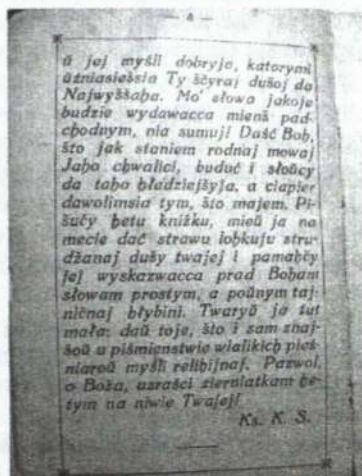 — 4 —
ŭ jej myśli dobryje, katorymi
ŭźniasieśsia Ty ščyraj dušoj da
Najwyššaha. Mo' słowa jakoje
budzie wydawacca mienš pad-
chodnym, nia sumuj! Daść Boh,
što jak staniem rodnaj mowaj
Jaho chwalici, buduć i słoŭcy
da taho hładziejšyja, a ciapier
dawolimsia tym, što majem. Pi-
šučy hetu knižku, mieŭ ja na
mecie dać strawu lohkuju stru-
džanaj dušy twajej i pamahčy
jej wyskazwacca prad Boham
słowam prostym, a poŭnym taj-
ničnaj hłybini. Twaryŭ ja tut
mała: daŭ toje, što i sam znaj-
šoŭ u piśmienstwie wialikich pieś-
niaroŭ myśli relihijnaj. Pazwol,
o Boža, uzraści zierniatkam he-
tym na niwie Twajej!
Ks. K. S.